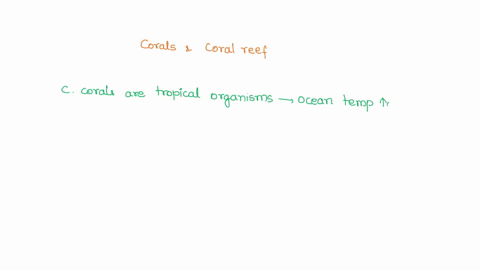 Corals & Coral reef
C. corals are tropical organisms → Ocean temp ↑